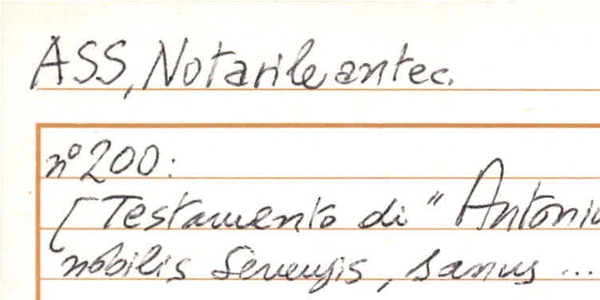 ASS, Notarile antec.
n° 200:
[Testamento di "Antoniu
nobilis Senensis, sanus ...